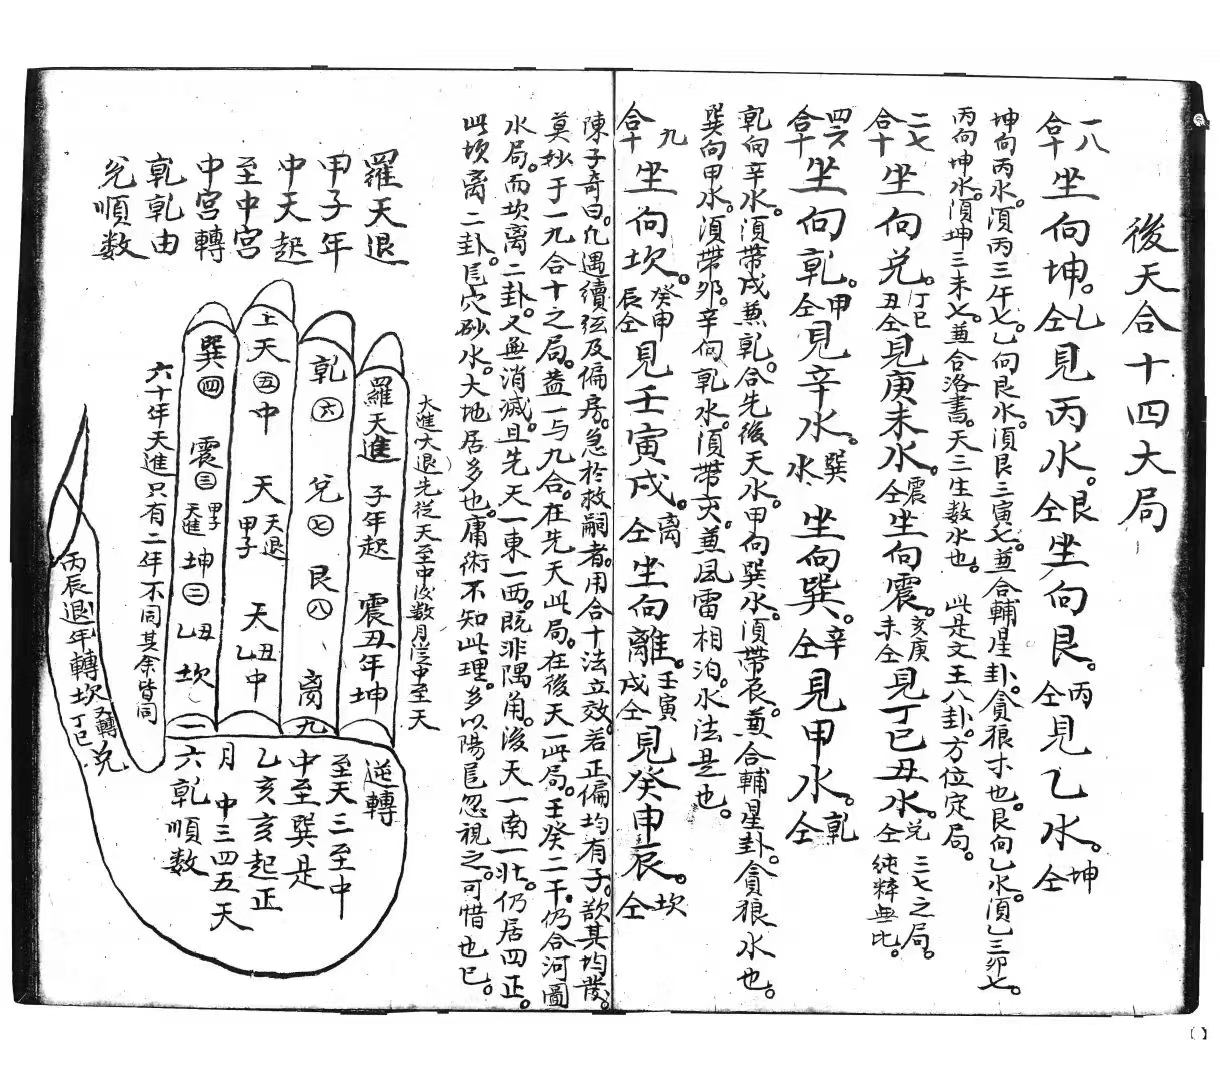 後天合十四大局
一八合十 坐向坤。乙仝見丙水。艮仝坐向艮。丙仝見乙水。坤仝
坤向丙水。須丙三午七。乙向艮水。須艮三寅七。兼合輔星卦。貪狼水也。艮向乙水。須乙三卯七。
丙向坤水。須坤三未七。兼合洛書。天三生数水也。 此是文王八卦。方位定局。
二七合十 坐向兌。丁巳丑仝見庚未水。震仝坐向震。亥庚未仝見丁巳丑水。兌仝 三七之局。純粹無比。
四六合十 坐向乾。甲仝見辛水。巽水 坐向巽。辛仝見甲水。乾仝
乾向辛水。須帶戌兼乾。合先後天水。甲向巽水。須帶辰。兼合輔星卦。貪狼水也。
巽向甲水。須帶卯。辛向乾水。須帶亥。兼風雷相泊。水法是也。
九合十 坐向坎。癸申辰仝見壬寅戌。离仝坐向離。壬寅戌仝見癸申辰。坎仝
陳子奇曰。凡遇續弦及偏房。急於救嗣者。用合十法立效。若正偏均有子。欲其均發。
莫妙于一九合十之局。蓋一与九合。在先天此局。在後天一此局。壬癸二干。仍合河圖
水局。而坎离二卦。又無消滅。且先天一東一西。既非隅角。後天一南一北。仍居四正。
此坎离二卦。穴砂水。大地居多也。庸術不知此理。多以陽忽視之。可惜也已。
羅天退
甲子年
中天起
至中宮
中宮轉
乾乾由
兌順数
大進大退先從天至中後数月從中至天
羅天進 子年起 震丑年坤
乾 六 兌 七 艮 八 离 九
上天 五 中 天甲子 天退 天乙丑 中
巽 四 震 三 甲子天進 坤 二 乙丑 坎 一
六十年天進只有二年不同其余皆同
丙辰退年轉坎又轉兌丁巳
逆轉
至天三至中
中至巽是
乙亥亥起正
月 中三四五天
六乾順数